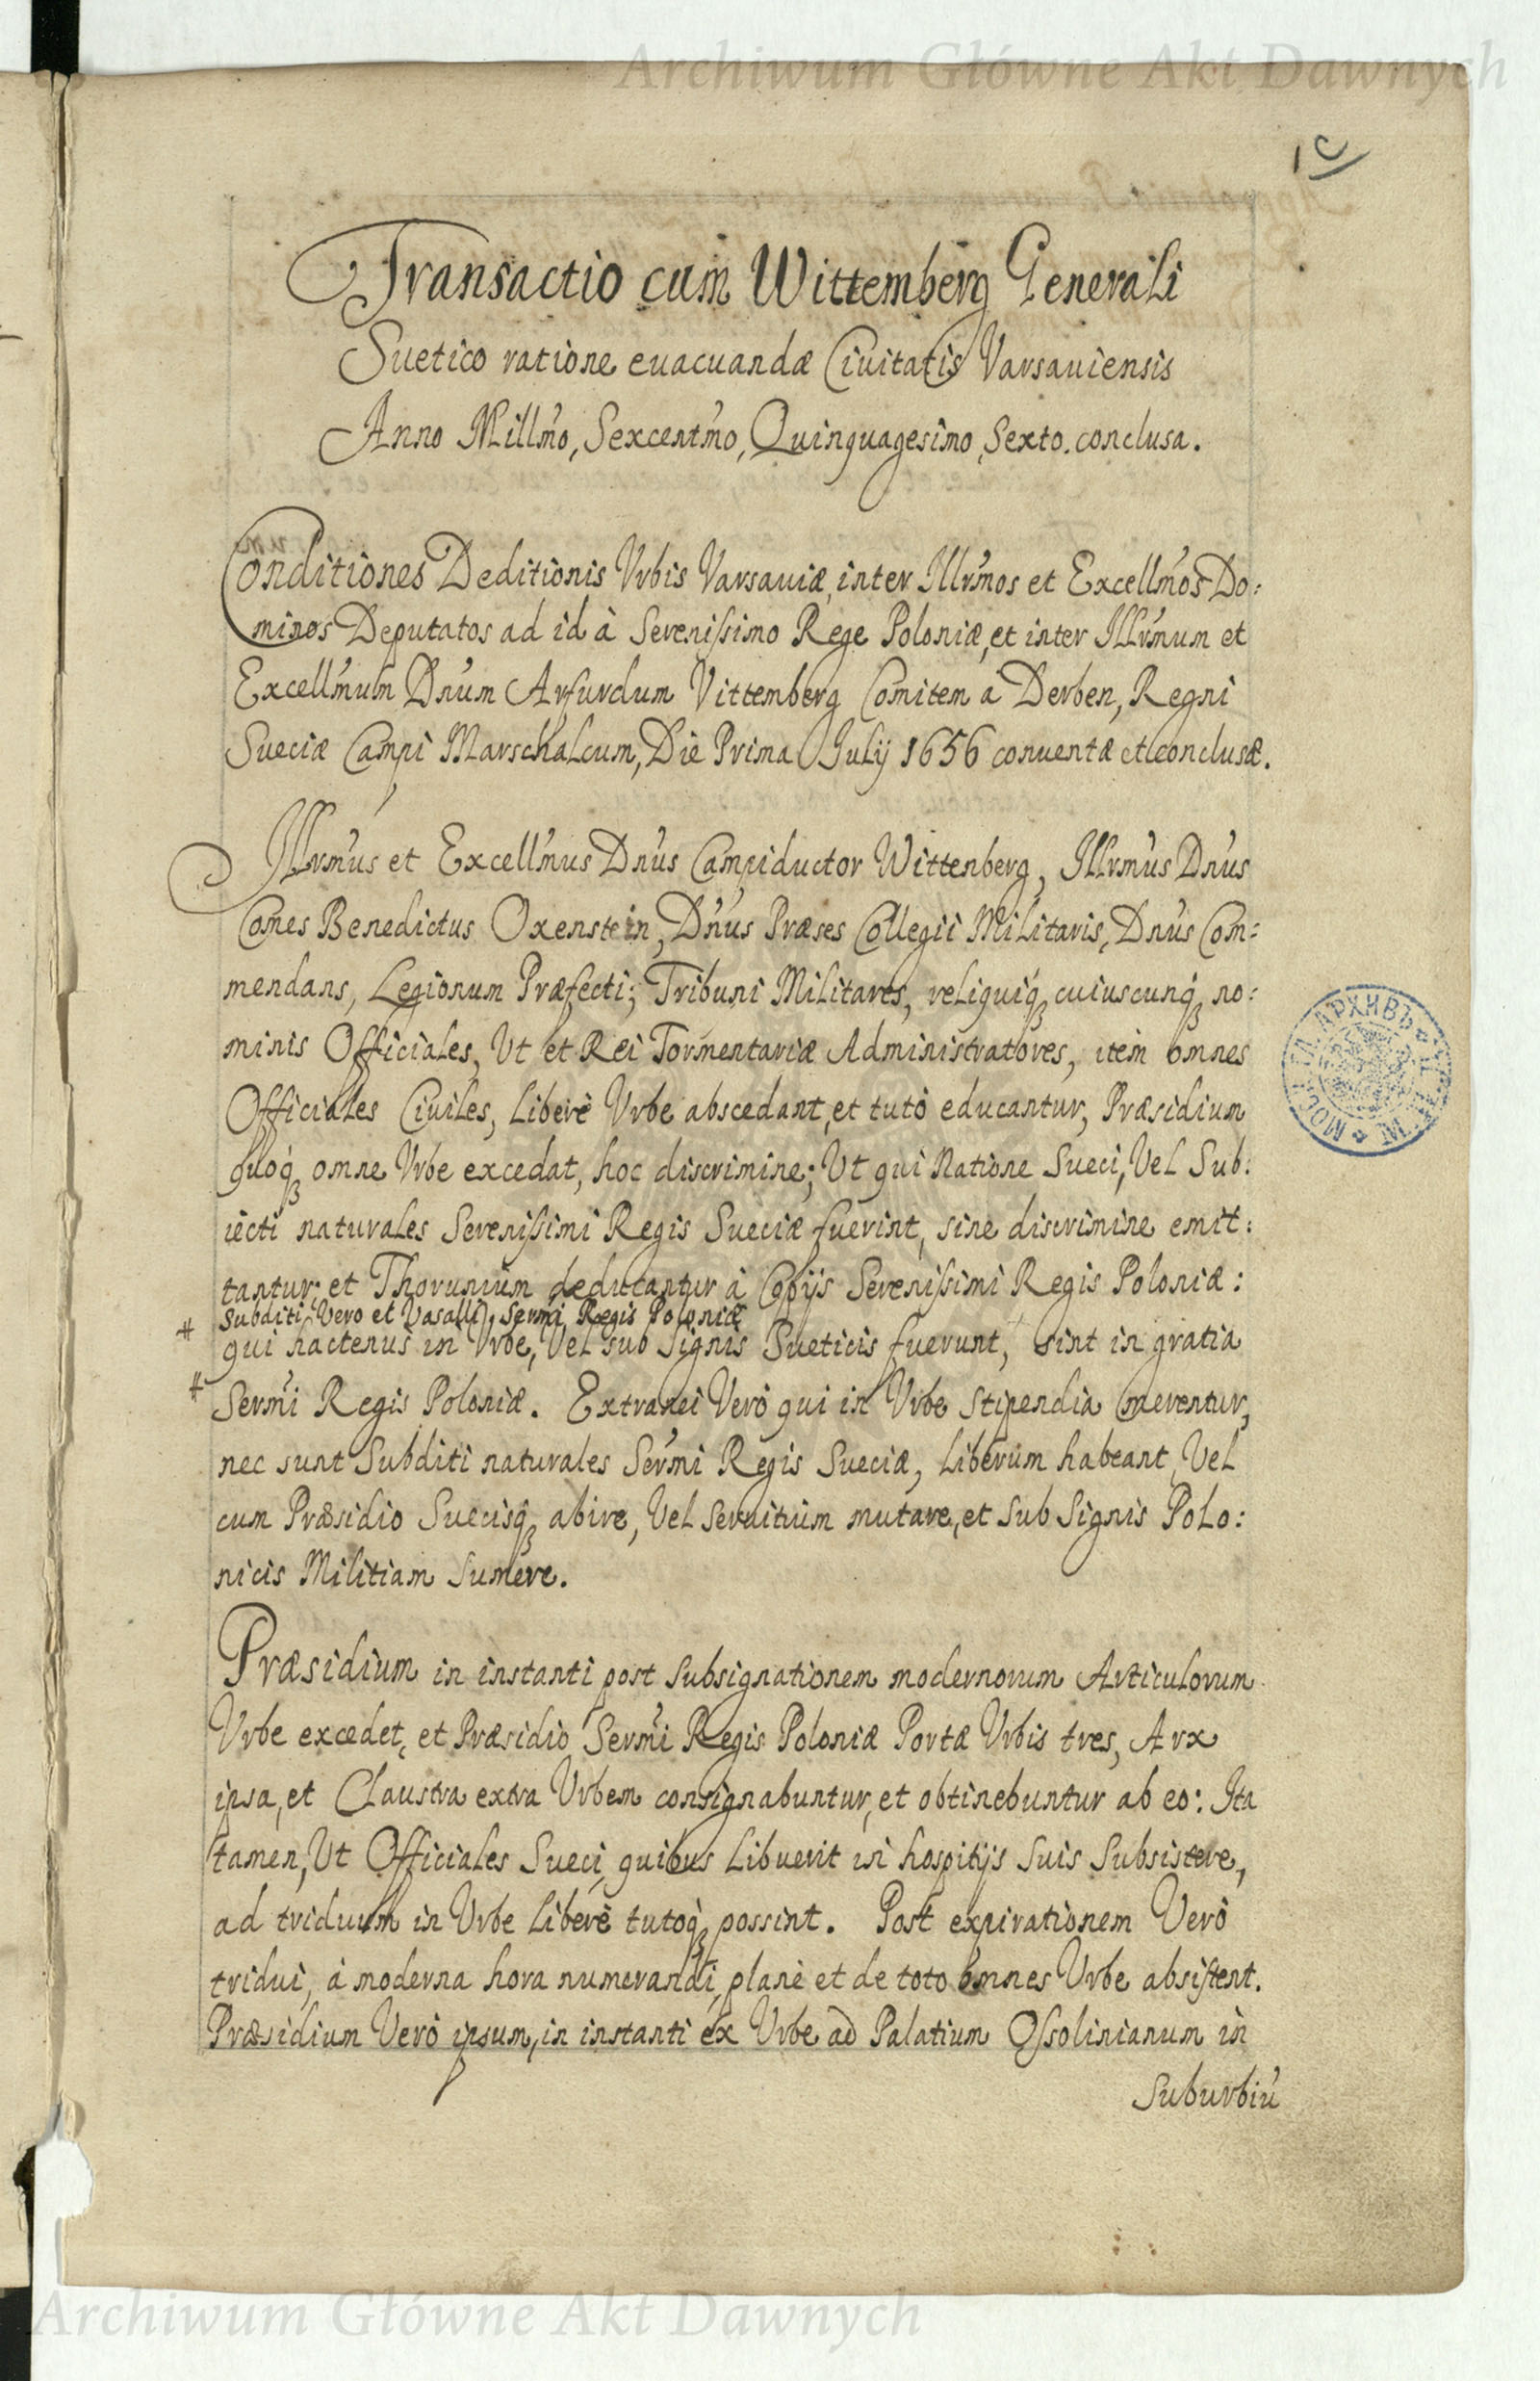 Archiwum Główne Akt Dawnych
Transactio cum Wittemberg Generali
Suetico ratione euacuandæ Ciuitatis Varsauiensis
Anno Millm̃o, Sexcentm̃o, Quinquagesimo, Sexto. conclusa.
Conditiones Deditionis Vrbis Varsauiæ, inter Illrm̃os et Excellm̃os Do:
minos Deputatos ad id à Serenissimo Rege Poloniæ, et inter Illrm̃um et
Excellm̃um Dñum Arfurdum Vittemberg Comitem a Derben, Regni
Sueciæ Campi Marschalcum, Die Prima Julij 1656 conuentæ et conclusæ.
Illrm̃us et Excellm̃us Dñus Campiductor Wittenberg, Illrm̃us Dñus
Comes Benedictus Oxenstein, Dñus Præses Collegii Militaris, Dñus Com:
mendans, Legionum Præfecti; Tribuni Militares, reliquiq́ꝫ cuiuscunq́ꝫ no:
minis Officiales, Ut et Rei Tormentariæ Administratores, item omnes
Officiales Ciuiles, Liberè Vrbe abscedant, et tutò educantur, Præsidium
quoq́ꝫ omne Vrbe excedat, hoc discrimine; Ut qui Natione Sueci, Vel Sub:
iecti naturales Serenissimi Regis Sueciæ fuerint, sine discrimine emit:
tantur; et Thorunium deducantur à Copijs Serenissimi Regis Poloniæ:
# Subditi Vero et Vasalli, Serm̃i Regis Poloniæ
qui hactenus in Vrbe, Vel sub Signis Sueticis fuerunt, sint in gratia
# Serm̃i Regis Poloniæ. Extranei Verò qui in Vrbe Stipendia merentur,
nec sunt Subditi naturales Serm̃i Regis Sueciæ, Liberum habeant, Vel
cum Præsidio Suecisq́ꝫ abire, Vel Seruitium mutare, et Sub Signis Polo:
nicis Militiam Sumere.
Præsidium in instanti post Subsignationem modernorum Articulorum
Vrbe excedet, et Præsidio Serm̃i Regis Poloniæ Portæ Urbis tres, Arx
ipsa, et Claustra extra Urbem consignabuntur, et obtinebuntur ab eo: Ita
tamen, Ut Officiales Sueci, quibus Libuerit in hospitijs Suis Subsistere,
ad triduum in Vrbe Liberè tutoq́ꝫ possint. Post expirationem Verò
tridui, à moderna hora numerandi, planè et de toto omnes Vrbe absistent.
Præsidium Verò ipsum, in instanti ex Vrbe ad Palatium Ossolinianum in
Suburbiũ
Archiwum Główne Akt Dawnych